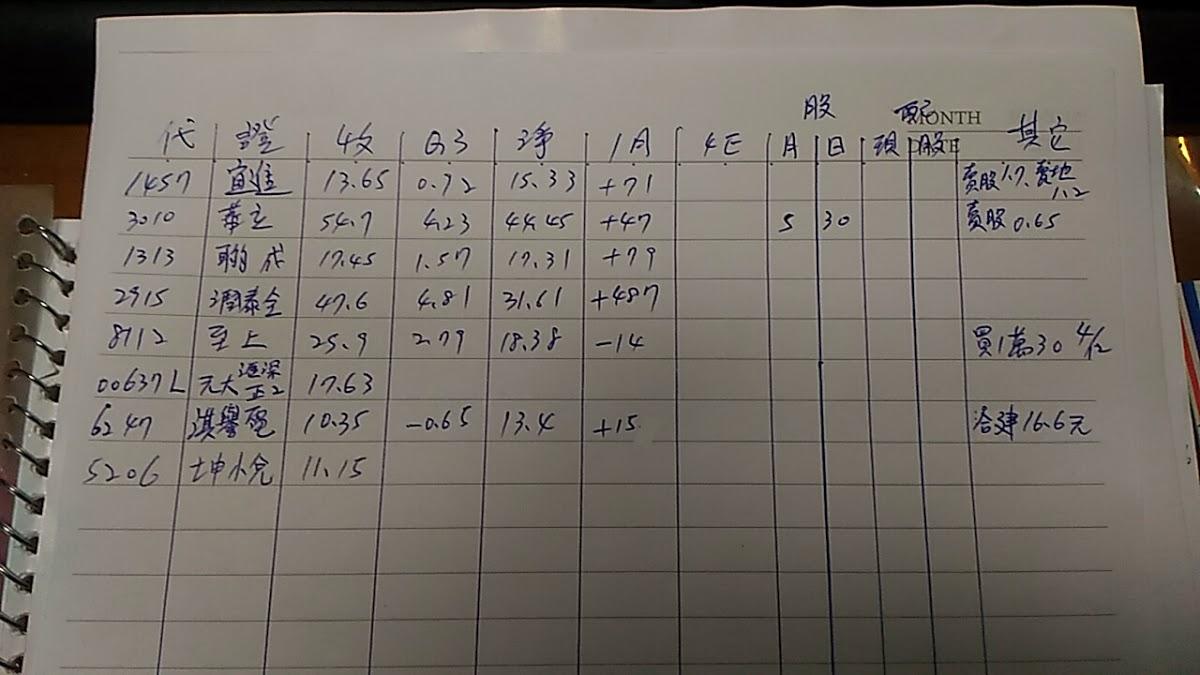 股 配 MONTH
代 證 收 Q3 淨 1月 E 月 日 現 股 其它
1457 宜進 13.65 0.72 15.33 +71 賣股1.7、賣地1.2
3010 華立 54.7 4.23 44.45 +47 5 30 賣股0.65
1313 聯成 17.45 1.57 17.31 +79
2915 潤泰全 47.6 4.81 31.61 +487
8112 至上 25.9 2.79 18.38 -14 買1萬30 4/12
00637L 元大滬深正2 17.63
6247 淇譽電 10.35 -0.65 13.4 +15 合建16.6元
5206 坤悅 11.15